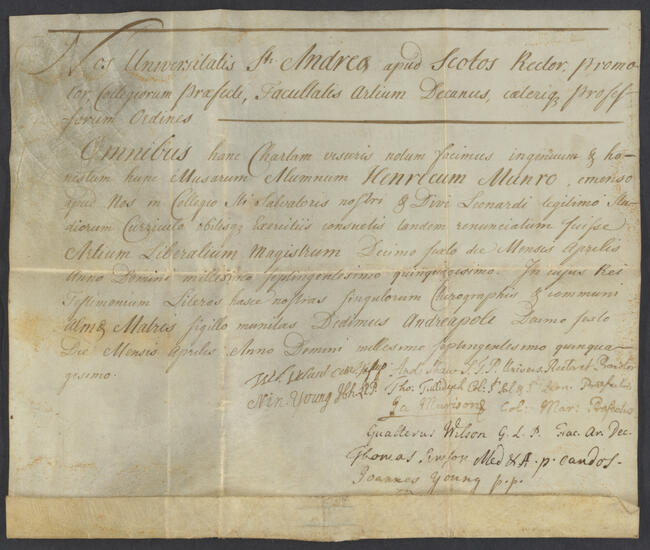 Nos Universitatis Sti Andreæ apud Scotos Rector, promo-
tor, Collegiorum Præfecti, Facultatis Artium Decanus, cæteriq; Profes-
sorum Ordines
Omnibus hanc Chartam visuris notum facimus ingenuum & ho-
nestum hunc Musarum Alumnum Henricum Munro, emenso
apud Nos in Collegio Sti Salvatoris nostri & Divi Leonardi legitimo Stu-
diorum Curriculo obitisq; Exercitiis consuetis tandem renunciatum fuisse
Artium Liberalium Magistrum Decimo sexto die Mensis Aprilis
Anno Domini millesimo septingentesimo quinquagesimo. In cujus Rei
Testimonium Literas hasce nostras singulorum Chyrographis & communi
Almæ Matris sigillo munitas Dedimus Andreapoli Decimo sexto
Die Mensis Aprilis Anno Domini millesimo septingentesimo quinqua-
gesimo.
And: Shaw S.T.P. Univers. Rector
Nin. Young
Tho: Tullideph Col: St Sal & St Leon: Præfectus
Ja Murison Col: Mar: Præfectus
Gualterus Wilson G. L. P. Fac. Ar. Dec.
Thomas Simson Med & A. p. Candos.
Joannes Young p.p.